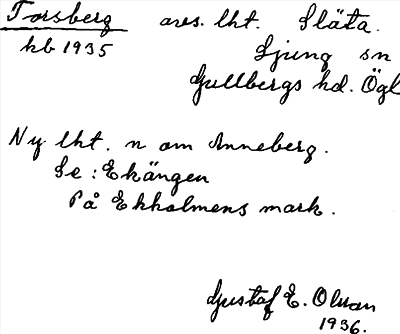 Torsberg avs. lht. Släta.
kb 1935 Ljung sn
Gullbergs hd. Ögl
Ny lht. n om Anneberg.
Se: Ekängen
På Ekholmens mark.
Gustaf E. Olsson
1936.